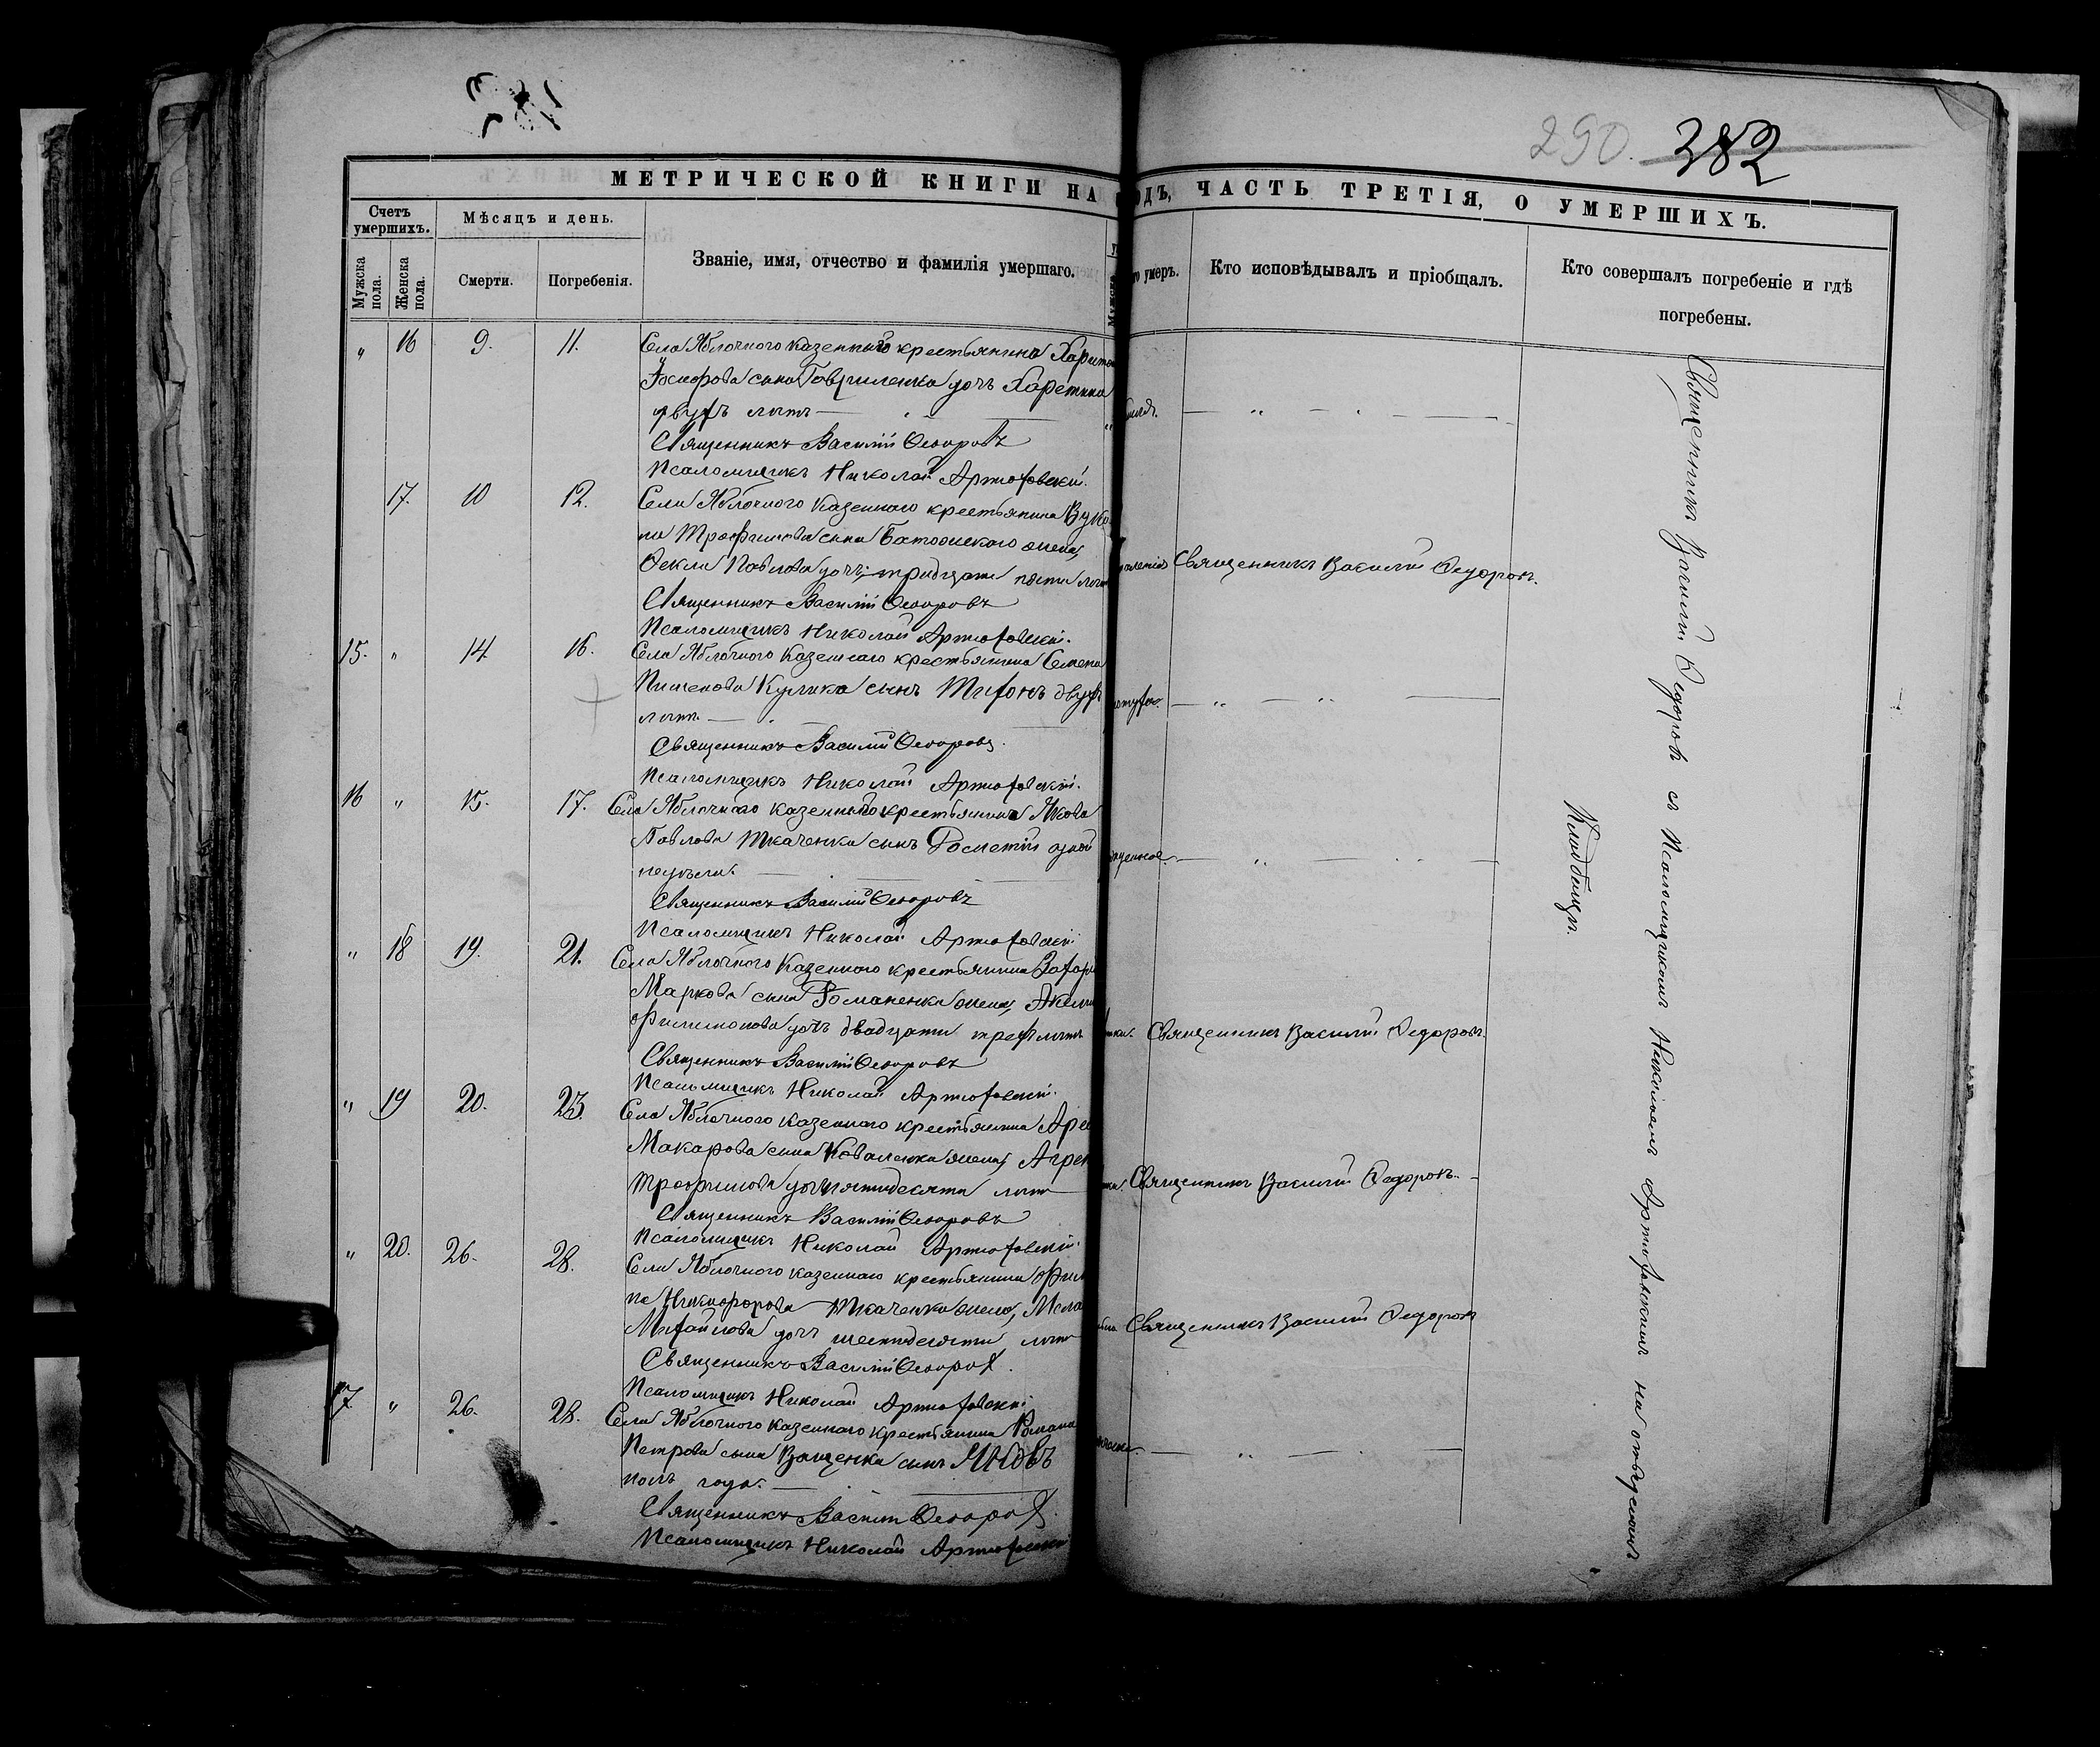 290. 382
МЕТРИЧЕСКОЙ КНИГИ НА ОДЪ, ЧАСТЬ ТРЕТІЯ, О УМЕРШИХЪ.
Счетъ умершихъ.
Мѣсяцъ и день.
Мужска пола.
Женска пола.
Смерти.
Погребенія.
Званіе, имя, отчество и фамилія умершаго.
Мужска
умеръ.
Кто исповѣдывалъ и пріобщалъ.
Кто совершалъ погребеніе и гдѣ
погребены.
" 16 9. 11. Села Яблочного казеннаго крестьянина Харитона
Іосифова сына Гавриленка дочь Харетина
двухъ лѣтъ
Священникъ Василій Ѳеодоровъ
Псаломщикъ Николай Артюховскій.
17. 10 12. Села Яблочного Казенного крестьянина Вуко
ла Трофимова сына жена,
Ѳекла Павлова дочь, тридцати пяти лѣтъ
Священникъ Василій Федоровъ.
Священникъ Василій Ѳеодоровъ
Псаломщикъ Николай Артюховскій.
15. " 14. 16. Села Яблочного Казеннаго крестьянина Семена
Пименова Кулика сынъ Тихонъ двухъ
лѣтъ.
Священникъ Василій Ѳеодоровъ.
Псаломщикъ Николай Артюховскій.
16 " 15. 17. Села Яблочного казеннаго крестьянина Якова
Павлова Ткаченка сынъ одной
недѣли.
Священникъ Василій Ѳеодоровъ
Псаломщикъ Николай Артюховскій
" 18 19. 21. Села Яблочного Казенного крестьянина Захарі
Маркова сына Романенка жена, Акили
Филимонова дочь двадцати трехъ лѣтъ
Священникъ Василій Федоровъ.
Священникъ Василій Ѳеодоровъ
Псаломщикъ Николай Артюховскій.
" 19 20. 23. Села Яблочного казенного крестьянина Аре
Макарова сына Коваленка жена, Агреп
Трофимова дочь пятидесяти лѣтъ
Священникъ Василій Федоровъ.
Священникъ Василій Ѳеодоровъ
Псаломщикъ Николай Артюховскій.
" 20. 26. 28. Села Яблочного казеннаго крестьянина Фили
па Никифорова Ткаченка жена, Мела
Михайлова дочь шестидесяти лѣтъ
Священникъ Василій Федоровъ
Священникъ Василій Ѳеодоровъ.
Псаломщикъ Николай Артюховскій
17. " 26. 28. Села Яблочного казеннаго крестьянина Романа
Петрова сына Ващенка сынъ Яковъ
полъ года.
Священникъ Василій Ѳеодоровъ.
Псаломщикъ Николай Артюховскій
Священникъ Василій Федоровъ съ Псаломщикомъ Николаемъ Артюховскимъ на отведенномъ
Кладбищѣ.